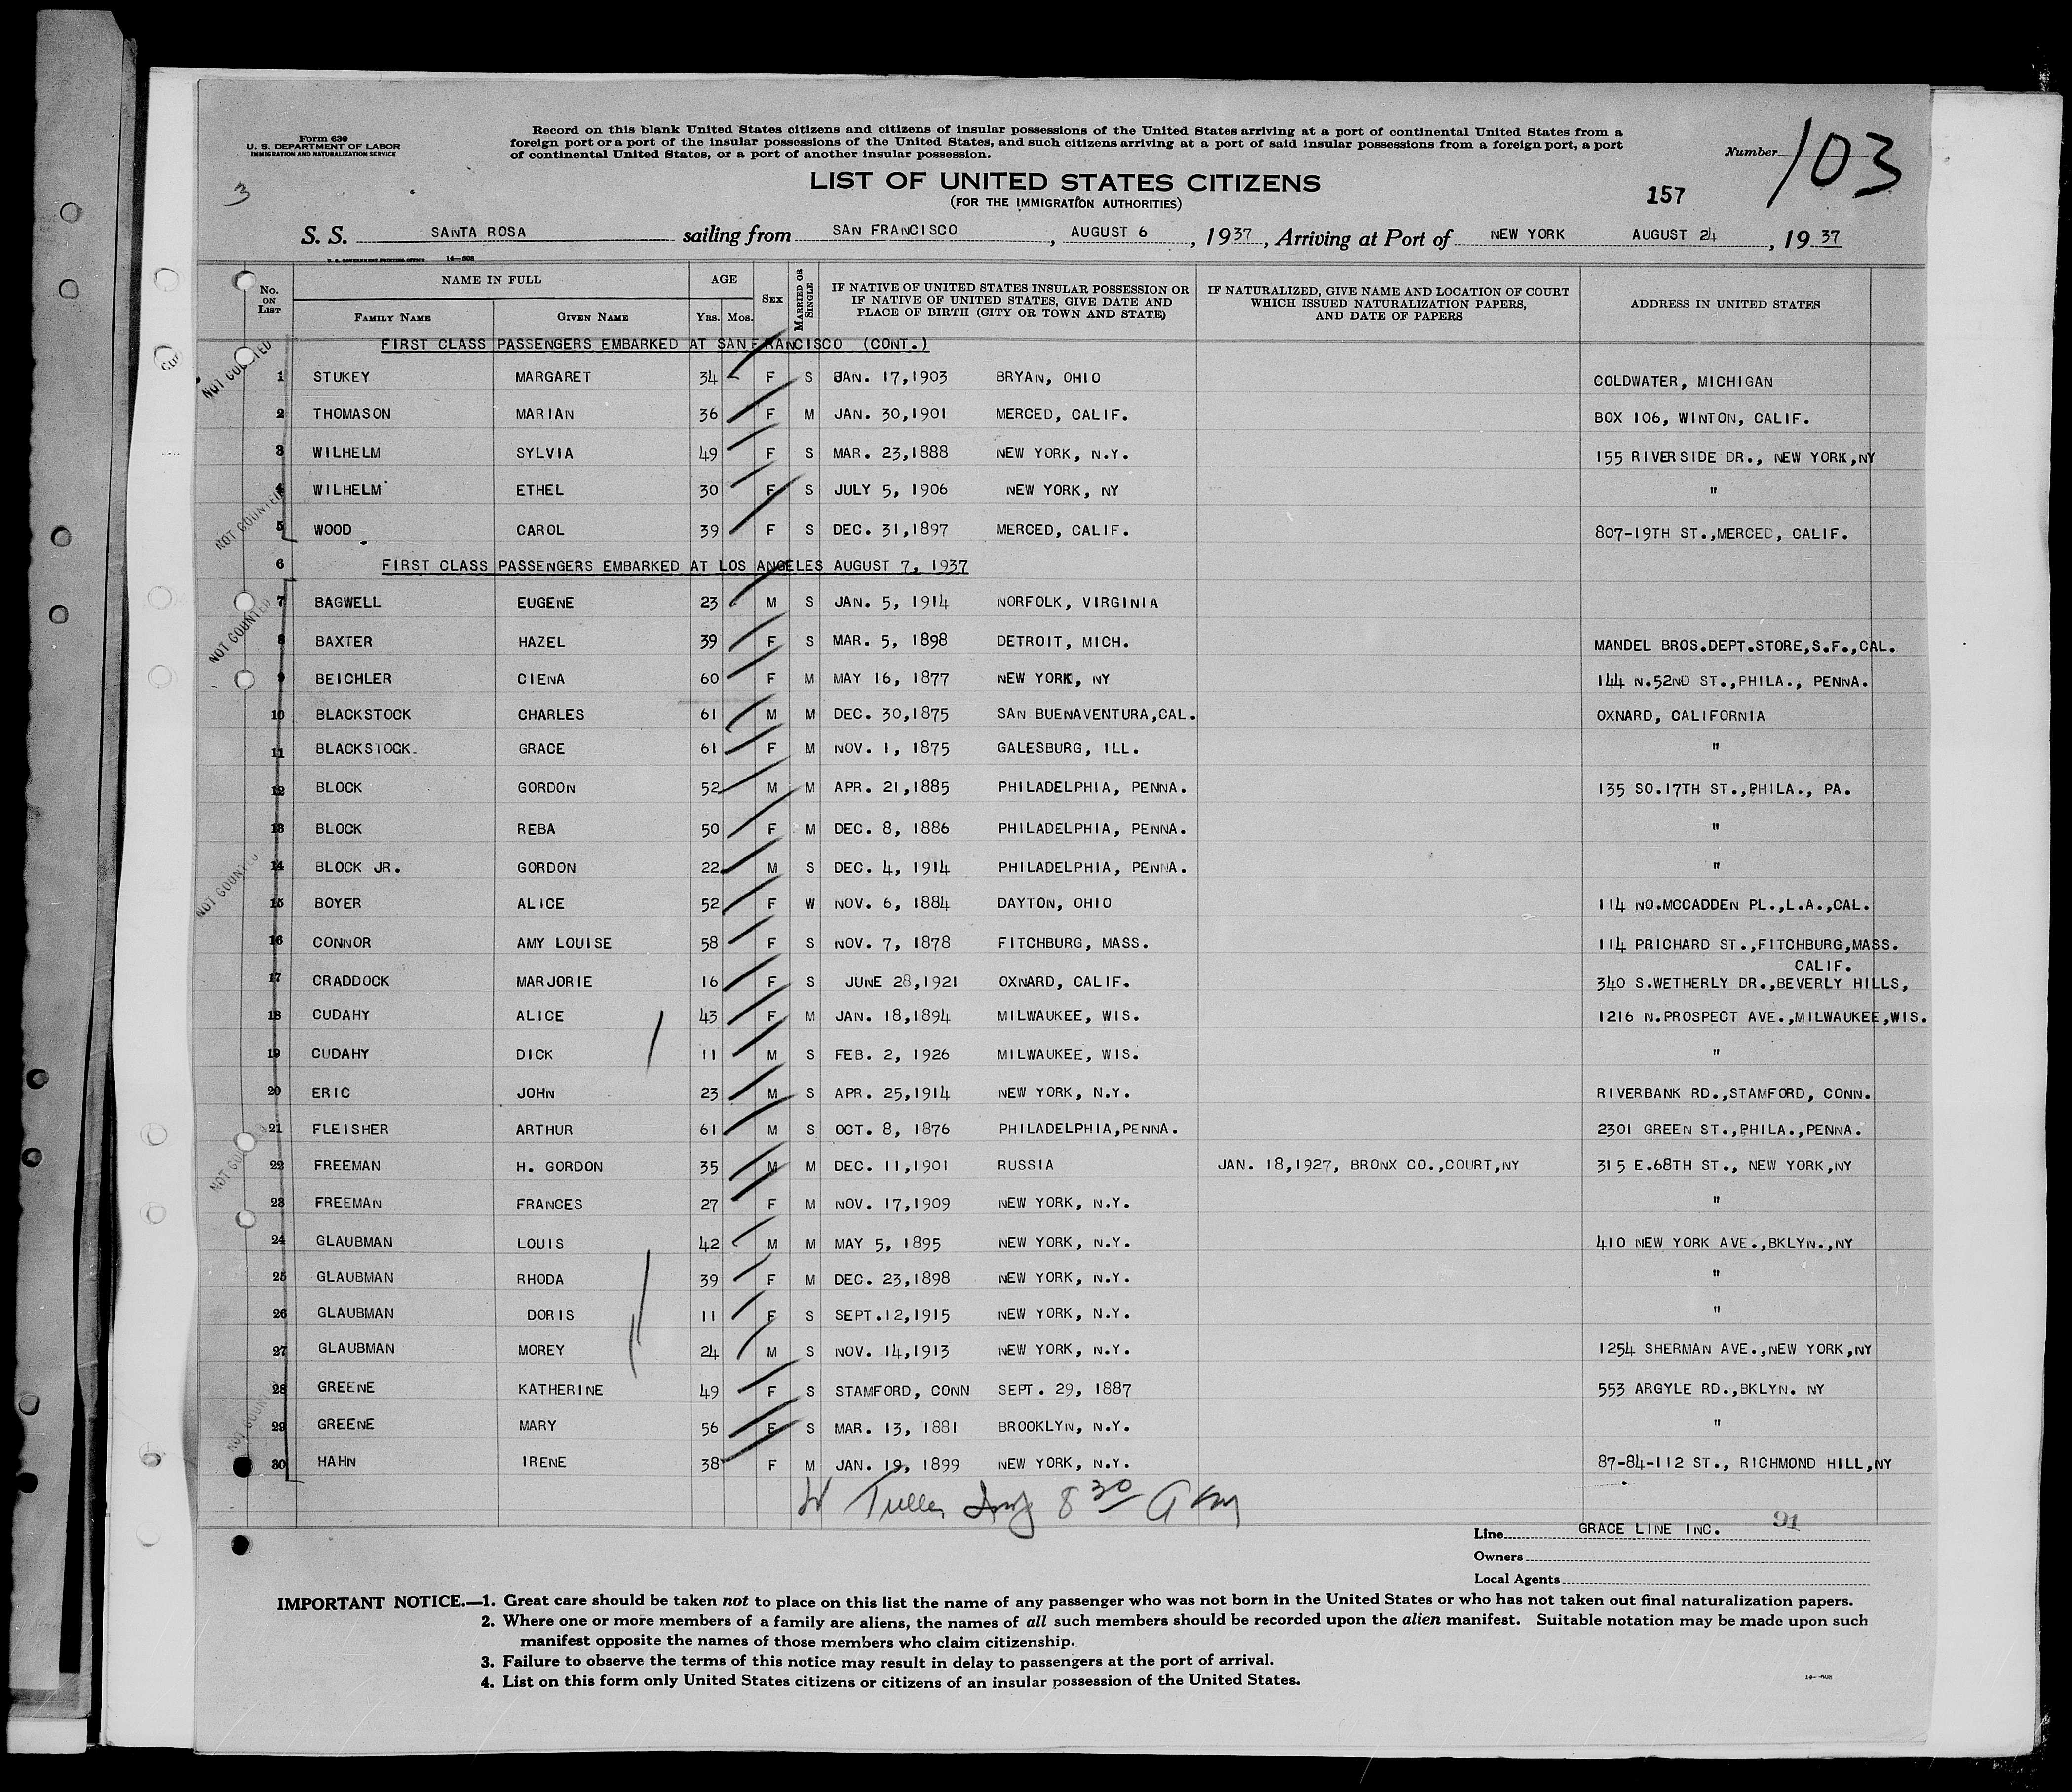 Form 630
U. S. DEPARTMENT OF LABOR
IMMIGRATION AND NATURALIZATION SERVICE
Record on this blank United States citizens and citizens of insular possessions of the United States arriving at a port of continental United States from a
foreign port or a port of the insular possessions of the United States, and such citizens arriving at a port of said insular possessions from a foreign port, a port
of continental United States, or a port of another insular possession.
Number 103
3
LIST OF UNITED STATES CITIZENS
(FOR THE IMMIGRATION AUTHORITIES)
157
S. S. SANTA ROSA sailing from SAN FRANCISCO, AUGUST 6, 1937, Arriving at Port of NEW YORK AUGUST 24, 1937
U. S. GOVERNMENT PRINTING OFFICE 14—608
No. ON LIST NAME IN FULL AGE SEX MARRIED OR SINGLE IF NATIVE OF UNITED STATES INSULAR POSSESSION OR IF NATIVE OF UNITED STATES, GIVE DATE AND PLACE OF BIRTH (CITY OR TOWN AND STATE) IF NATURALIZED, GIVE NAME AND LOCATION OF COURT WHICH ISSUED NATURALIZATION PAPERS, AND DATE OF PAPERS ADDRESS IN UNITED STATES
FAMILY NAME GIVEN NAME YRS. MOS.
FIRST CLASS PASSENGERS EMBARKED AT SAN FRANCISCO (CONT.)
NOT COUNTED
1 STUKEY MARGARET 34 F S JAN. 17,1903 BRYAN, OHIO COLDWATER, MICHIGAN
2 THOMASON MARIAN 36 F M JAN. 30,1901 MERCED, CALIF. BOX 106, WINTON, CALIF.
3 WILHELM SYLVIA 49 F S MAR. 23,1888 NEW YORK, N.Y. 155 RIVERSIDE DR., NEW YORK,NY
4 WILHELM ETHEL 30 F S JULY 5, 1906 NEW YORK, NY "
NOT COUNTED
5 WOOD CAROL 39 F S DEC. 31,1897 MERCED, CALIF. 807-19TH ST.,MERCED, CALIF.
6 FIRST CLASS PASSENGERS EMBARKED AT LOS ANGELES AUGUST 7, 1937
7 BAGWELL EUGENE 23 M S JAN. 5, 1914 NORFOLK, VIRGINIA
NOT COUNTED
8 BAXTER HAZEL 39 F S MAR. 5, 1898 DETROIT, MICH. MANDEL BROS.DEPT.STORE,S.F.,CAL.
9 BEICHLER CIENA 60 F M MAY 16, 1877 NEW YORK, NY 144 N.52ND ST.,PHILA., PENNA.
10 BLACKSTOCK CHARLES 61 M M DEC. 30,1875 SAN BUENAVENTURA,CAL. OXNARD, CALIFORNIA
11 BLACKSTOCK GRACE 61 F M NOV. 1, 1875 GALESBURG, ILL. "
12 BLOCK GORDON 52 M M APR. 21,1885 PHILADELPHIA, PENNA. 135 SO.17TH ST.,PHILA., PA.
13 BLOCK REBA 50 F M DEC. 8, 1886 PHILADELPHIA, PENNA. "
14 BLOCK JR. GORDON 22 M S DEC. 4, 1914 PHILADELPHIA, PENNA. "
NOT COUNTED
15 BOYER ALICE 52 F W NOV. 6, 1884 DAYTON, OHIO 114 NO.MCCADDEN PL.,L.A.,CAL.
16 CONNOR AMY LOUISE 58 F S NOV. 7, 1878 FITCHBURG, MASS. 114 PRICHARD ST.,FITCHBURG,MASS.
CALIF.
17 CRADDOCK MARJORIE 16 F S JUNE 28,1921 OXNARD, CALIF. 340 S.WETHERLY DR.,BEVERLY HILLS,
18 CUDAHY ALICE 43 F M JAN. 18,1894 MILWAUKEE, WIS. 1216 N.PROSPECT AVE.,MILWAUKEE,WIS.
19 CUDAHY DICK 11 M S FEB. 2, 1926 MILWAUKEE, WIS. "
20 ERIC JOHN 23 M S APR. 25,1914 NEW YORK, N.Y. RIVERBANK RD.,STAMFORD, CONN.
21 FLEISHER ARTHUR 61 M S OCT. 8, 1876 PHILADELPHIA,PENNA. 2301 GREEN ST.,PHILA.,PENNA.
NOT COUNTED
22 FREEMAN H. GORDON 35 M M DEC. 11,1901 RUSSIA JAN. 18,1927, BRONX CO.,COURT,NY 315 E.68TH ST., NEW YORK,NY
23 FREEMAN FRANCES 27 F M NOV. 17,1909 NEW YORK, N.Y. "
24 GLAUBMAN LOUIS 42 M M MAY 5, 1895 NEW YORK, N.Y. 410 NEW YORK AVE.,BKLYN.,NY
25 GLAUBMAN RHODA 39 F M DEC. 23,1898 NEW YORK, N.Y. "
26 GLAUBMAN DORIS 11 F S SEPT.12,1915 NEW YORK, N.Y. "
27 GLAUBMAN MOREY 24 M S NOV. 14,1913 NEW YORK, N.Y. 1254 SHERMAN AVE.,NEW YORK,NY
28 GREENE KATHERINE 49 F S STAMFORD, CONN SEPT. 29, 1887 553 ARGYLE RD.,BKLYN. NY
NOT COUNTED
29 GREENE MARY 56 F S MAR. 13, 1881 BROOKLYN, N.Y. "
30 HAHN IRENE 38 F M JAN. 19, 1899 NEW YORK, N.Y. 87-84-112 ST., RICHMOND HILL,NY
8 30 A
Line GRACE LINE INC. 91
Owners
Local Agents
IMPORTANT NOTICE.—1. Great care should be taken not to place on this list the name of any passenger who was not born in the United States or who has not taken out final naturalization papers.
2. Where one or more members of a family are aliens, the names of all such members should be recorded upon the alien manifest. Suitable notation may be made upon such
manifest opposite the names of those members who claim citizenship.
3. Failure to observe the terms of this notice may result in delay to passengers at the port of arrival.
4. List on this form only United States citizens or citizens of an insular possession of the United States.
14—608